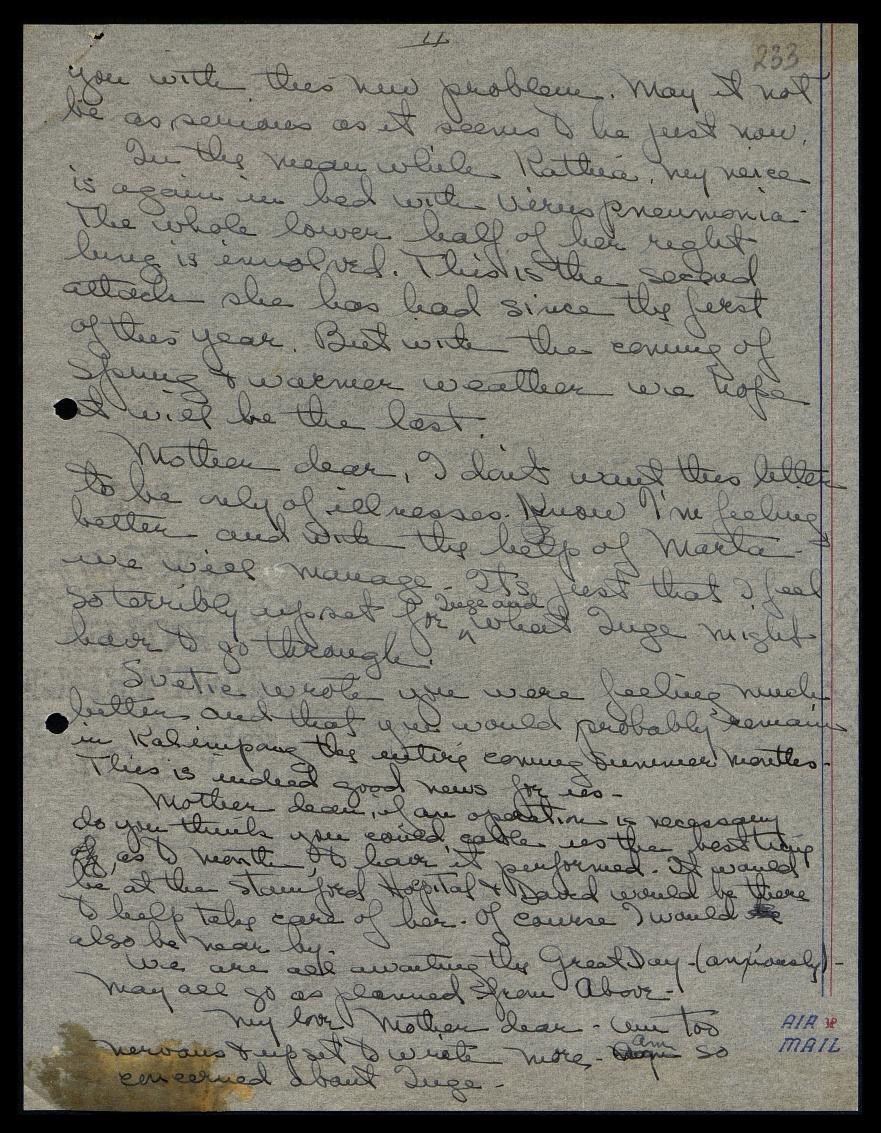 233
you with this new problem. May it not
be as serious as it seems to be just now.
In the mean while Kathia, my neice
is again in bed with virus pneumonia.
The whole lower half of her right
lung is involved. This is the second
attack she has had since the first
of this year. But with the coming of
Spring & warmer weather we hope
it will be the last.
Mother dear, I don't want this letter
to be only of illnesses. Know I'm feeling
better and with the help of Marta -
we will manage - It's just that I feel
so terribly upset for Inge and what Inge might
have to go through.
Svetie wrote you were feeling much
better and that you would probably remain
in Kalimpong the entire coming summer months.
This is indeed good news for us -
Mother dear, if an operation is necessary
do you think you could cable us the best time
as to month, to have it performed. It would
be at the Stamford Hospital & David would be there
to help take care of her. Of course I would
also be near by.
We are all awaiting the Great Day - (anxiously) -
May all go as planned from Above -
My love Mother dear - am too
nervous & upset to write more - am so
concerned about Inge -
AIR
MAIL